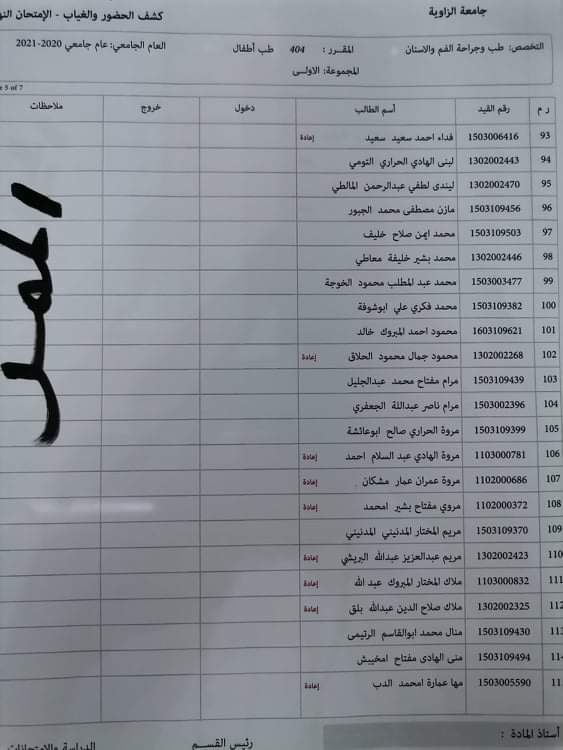 جامعة الزاوية
كشف الحضور والغياب - الإمتحان
التخصص: طب وجراحة الفم والاسنان المقـرر : 404 طب أطفال العام الجامعي: عام جامعي 2020-2021
المجموعة: الاولى
5 of 7
ر م رقم القيد أسم الطالب دخول خروج ملاحظات
93 1503006416 فداء احمد سعيد سعيد إعادة
94 1302002443 لبنى الهادي الحراري التومي
95 1302002470 ليندى لطفي عبدالرحمن المالطي
96 1503109456 مازن مصطفى محمد الجبور
97 1503109503 محمد ايمن صلاح خليف
98 1302002446 محمد بشير خليفة معاطي
99 1503003477 محمد عبد المطلب محمود الخوجة
100 1503109382 محمد فكري علي ابوشوفة
101 1603109621 محمود احمد المبروك خالد
102 1302002268 محمود جمال محمود الحلاق إعادة
103 1503109439 مرام مفتاح محمد عبدالجليل
104 1503002396 مرام ناصر عبداللة الجعفري
105 1503109399 مروة الحراري صالح ابوعائشة
106 1103000781 مروة الهادي عبد السلام احمد إعادة
107 1102000686 مروة عمران عمار مشكان إعادة
108 1102000372 مروي مفتاح بشير امحمد إعادة
109 1503109370 مريم المختار المدنيني المدنيني
110 1302002423 مريم عبدالعزيز عبدالله البريشي إعادة
11 1103000832 ملاك المختار المبروك عبد الله إعادة
112 1302002325 ملاك صلاح الدين عبدالله بلق إعادة
113 1503109430 منال محمد ابوالقاسم الرتيمى
11 1503109494 منى الهادى مفتاح امخيبش
11 1503005590 مها عمارة امحمد الدب إعادة
أستاذ المادة :
رئيس القســم
الدراسة والامتحانات